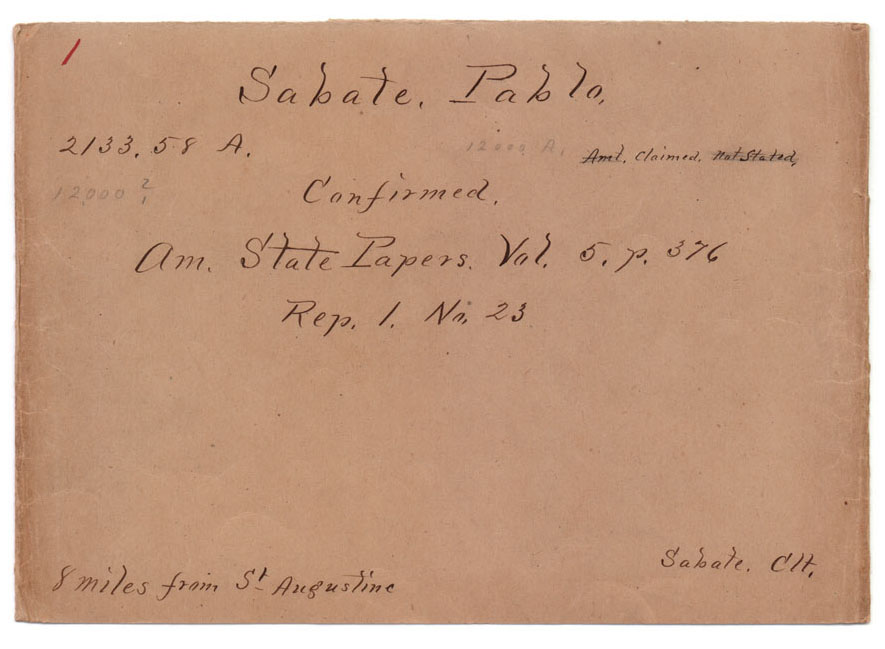 1
Sabate, Pablo,
2133.58 A. 12000 A. Amt. Claimed. Not Stated,
12,000
Confirmed.
Am. State Papers. Vol. 5. p. 376
Rep. 1. No. 23
Sabate. Clt.
8 miles from St Augustine